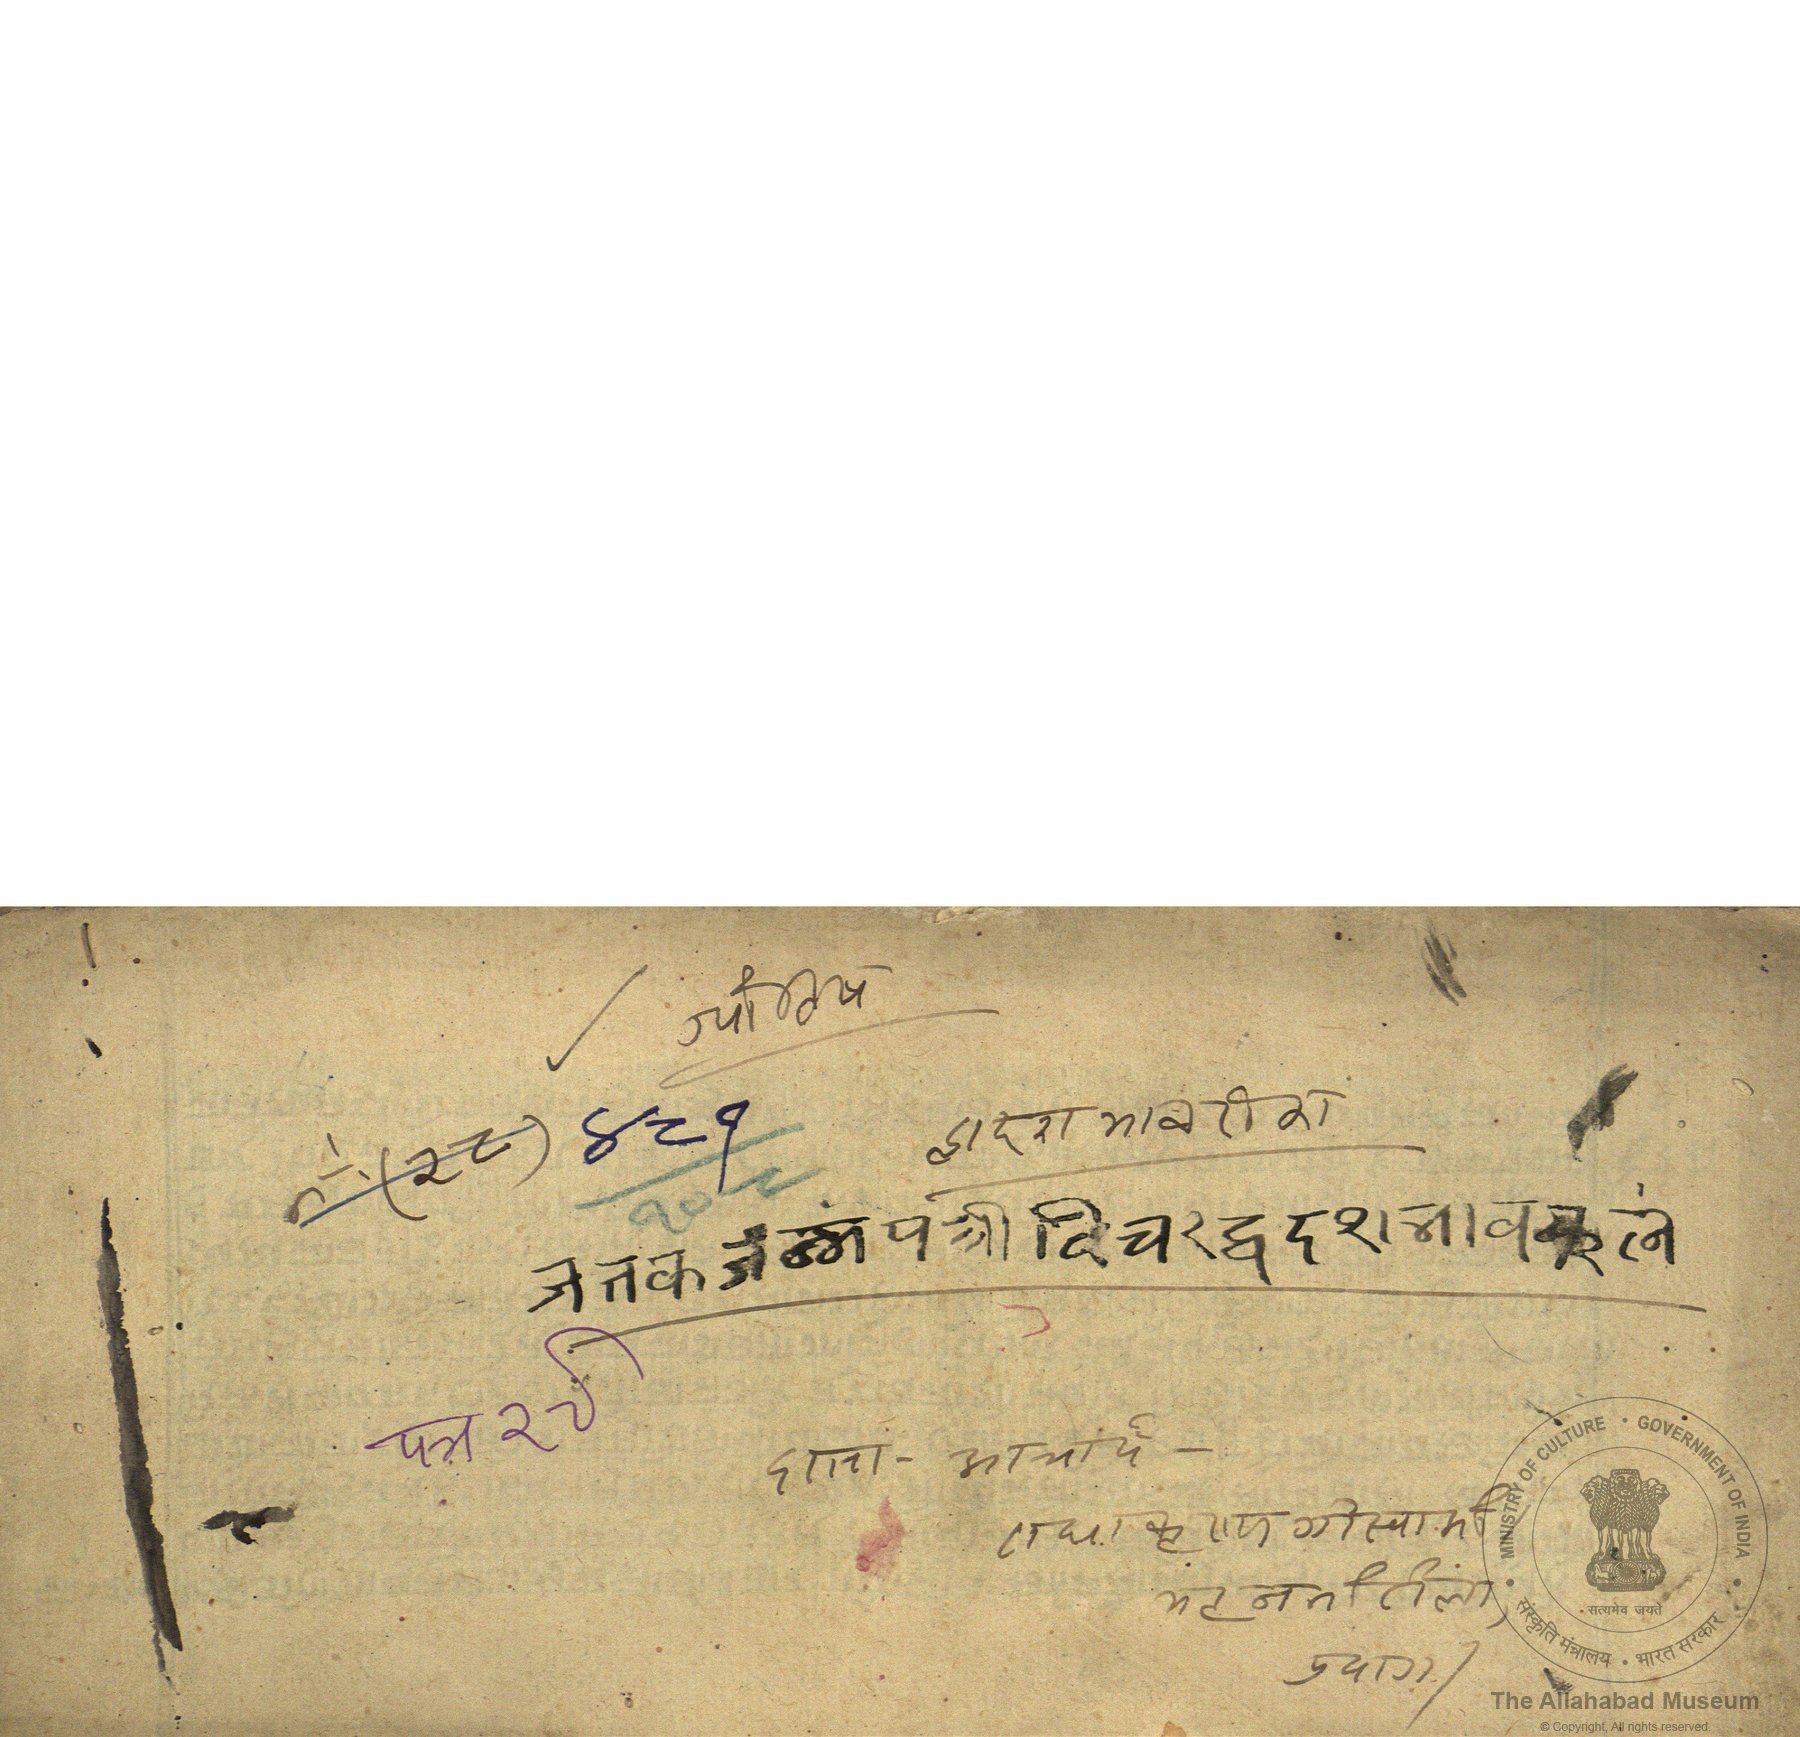 ज्योतिष
द्वादश भाव टीका
नं. (२८) ४८१
२०८
जतकजन्मपत्रीविचरद्वदशभावफलं
पत्र २९
दाता - आचार्य -
राधा कृष्ण गोस्वामी
प्रयाग
MINISTRY OF CULTURE • GOVERNMENT OF INDIA
सत्यमेव जयते
संस्कृति मंत्रालय • भारत सरकार
The Allahabad Museum
© Copyright, All rights reserved.